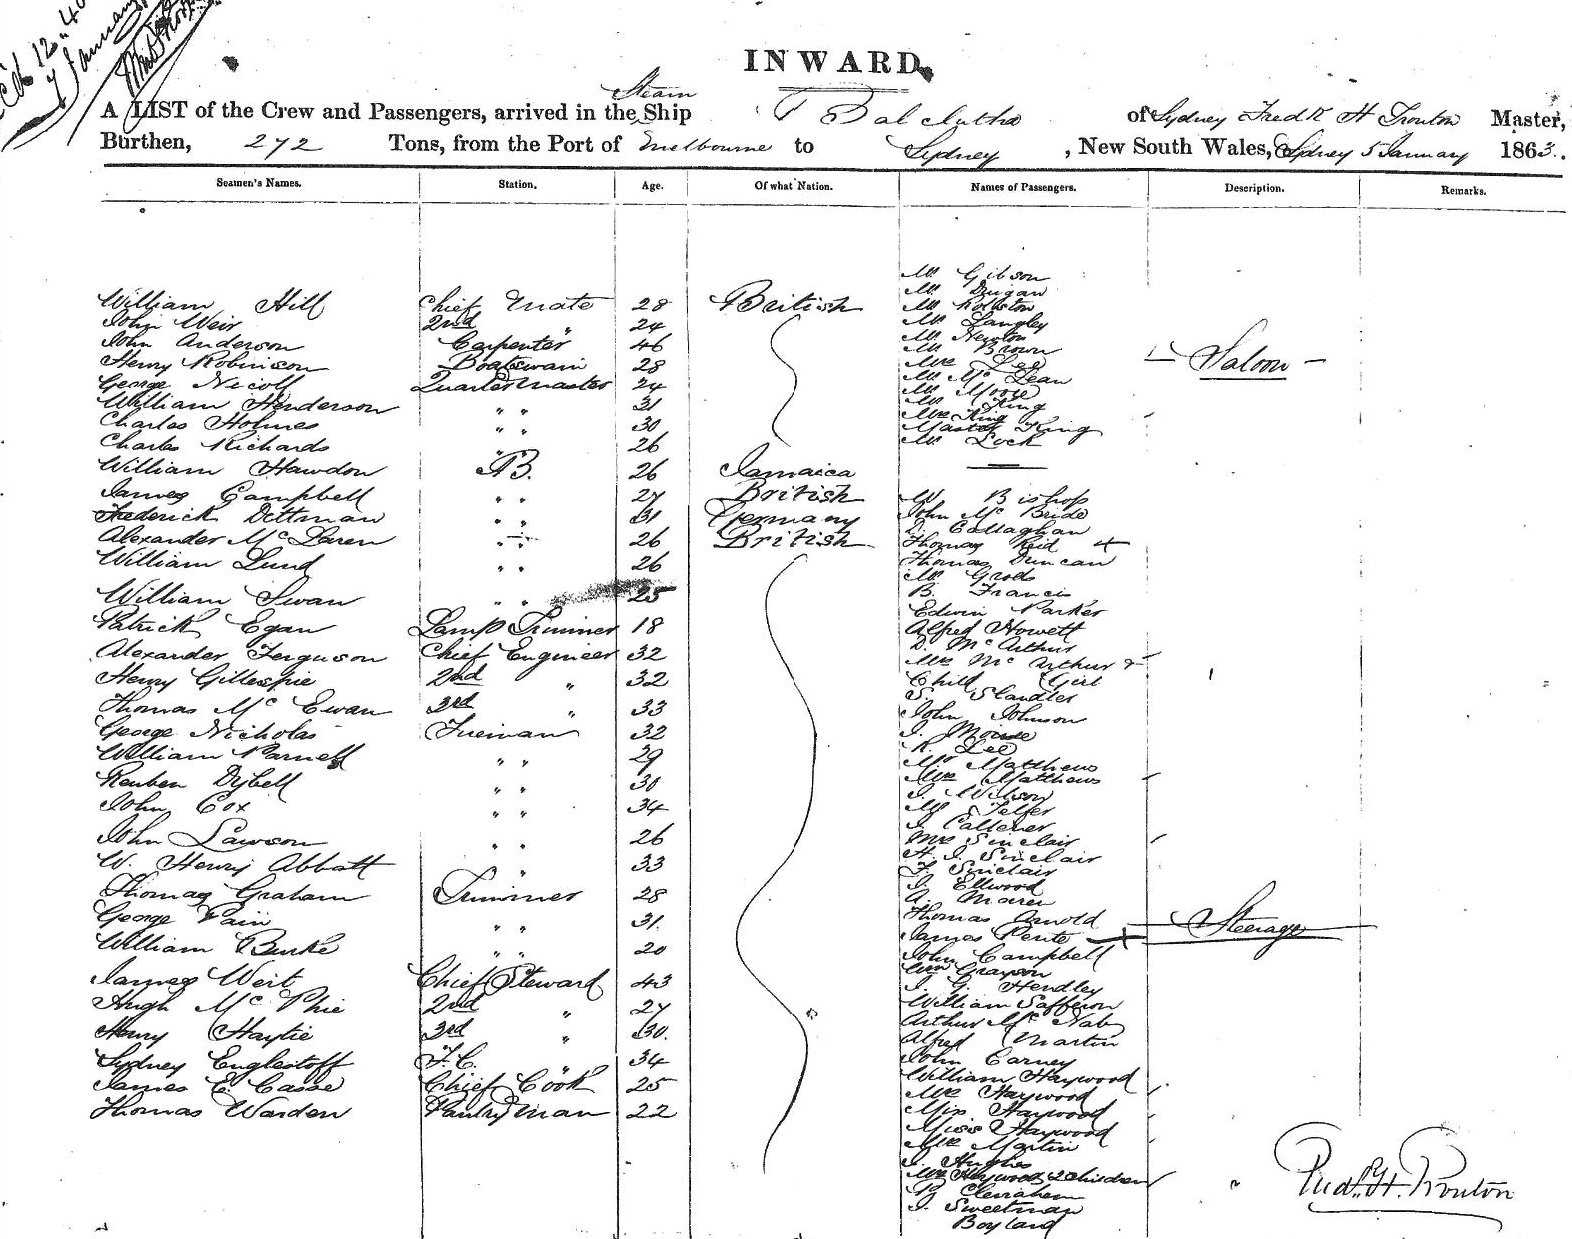 INWARD.
A LIST of the Crew and Passengers, arrived in the Steam Ship Balclutha of Sydney Fredk H Trouton Master,
Burthen, 272 Tons, from the Port of Melbourne to Sydney, New South Wales, Sydney 5 January 1863.
Seamen's Names. Station. Age. Of what Nation. Names of Passengers. Description. Remarks.
William Hill Chief Mate 28 British
John Weir 2nd " 24
John Anderson Carpenter 46
Henry Robinson Boatswain 28
George Nicoll Quartermaster 24
William Henderson " " 31
Charles Holmes " " 30
Charles Richards " 26
William Hawdon AB. 26 Jamaica
James Campbell " " 27 British
Frederick Dittman " " 31 Germany
Alexander McLaren " " 26 British
William Lund " " 26
William Swan " " 25
Patrick Egan Lamp Trimmer 18
Alexander Ferguson Chief Engineer 32
Henry Gillespie 2nd " 32
Thomas McEwan 3rd " 33
George Nicholas Fireman 32
William Parnell " " 29
Reuben Dybell " " 30
John Cox " " 34
John Lawson " " 26
W. Henry Abbott " 33
Thomas Graham Trimmer 28
George Pain " " 31.
William Burke " " 20
James Weit Chief Steward 43
Hugh McPhie 2nd " 27
Henry Haytie 3rd " 30.
Sydney Englestoff F.C. " 34
James E. Casse Chief Cook 25
Thomas Warden Pantryman 22
Mr. Gibson
Mr. Dugan
Mr. Rolliston
Mr. Langley
Mr. Newton
Mr. Brown
Mrs Lee
Mr. McLean
Mr. Moore
Mr. King
Mrs King
Master King
Mr. Lock
Saloon
W. Bishop
John McBride
J. Callaghan
Thomas Reid
Thomas Duncan
W. Grods
B. Francis
Edwin Parker
Alfred Howett
D. McArthur
Mrs McArthur &
Child Girl
S. Slandler
John Johnson
J. Moore
R. Lee
Mr Matthews
Mrs Matthews
J. Wilson
W. Telfer
J. Callener
Mrs Sinclair
H. J. Sinclair
F. Sinclair
J. Ellwood
A. Maren
Thomas Arnold
James Pente
John Campbell
Wm Grayson
J. G. Hendley
William Safferon
Arthur McNab
Alfred Martin
John Carney
William Haywood
Mrs Haywood
Miss Haywood
Miss Haywood
Mrs Martin
J. Hughes
Mrs Heywood & 2 children
P. Clenahem
J. Sweetman
Boyland
Steerage
Fredk. H. Trouton